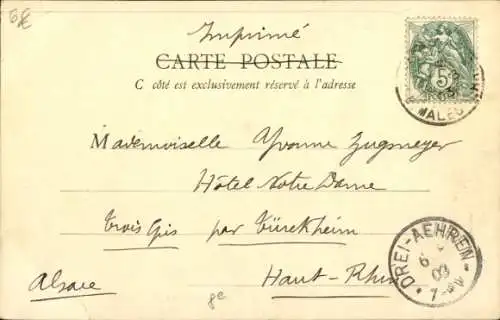 6€
Imprimé
CARTE POSTALE
C côté est exclusivement réservé à l'adresse
5
Mademoiselle Yvonne Zugmeyer
Hôtel Notre Dame
Trois Épis par Türckheim
Alsace Haut-Rhin
DREI-AEHREN
6
03